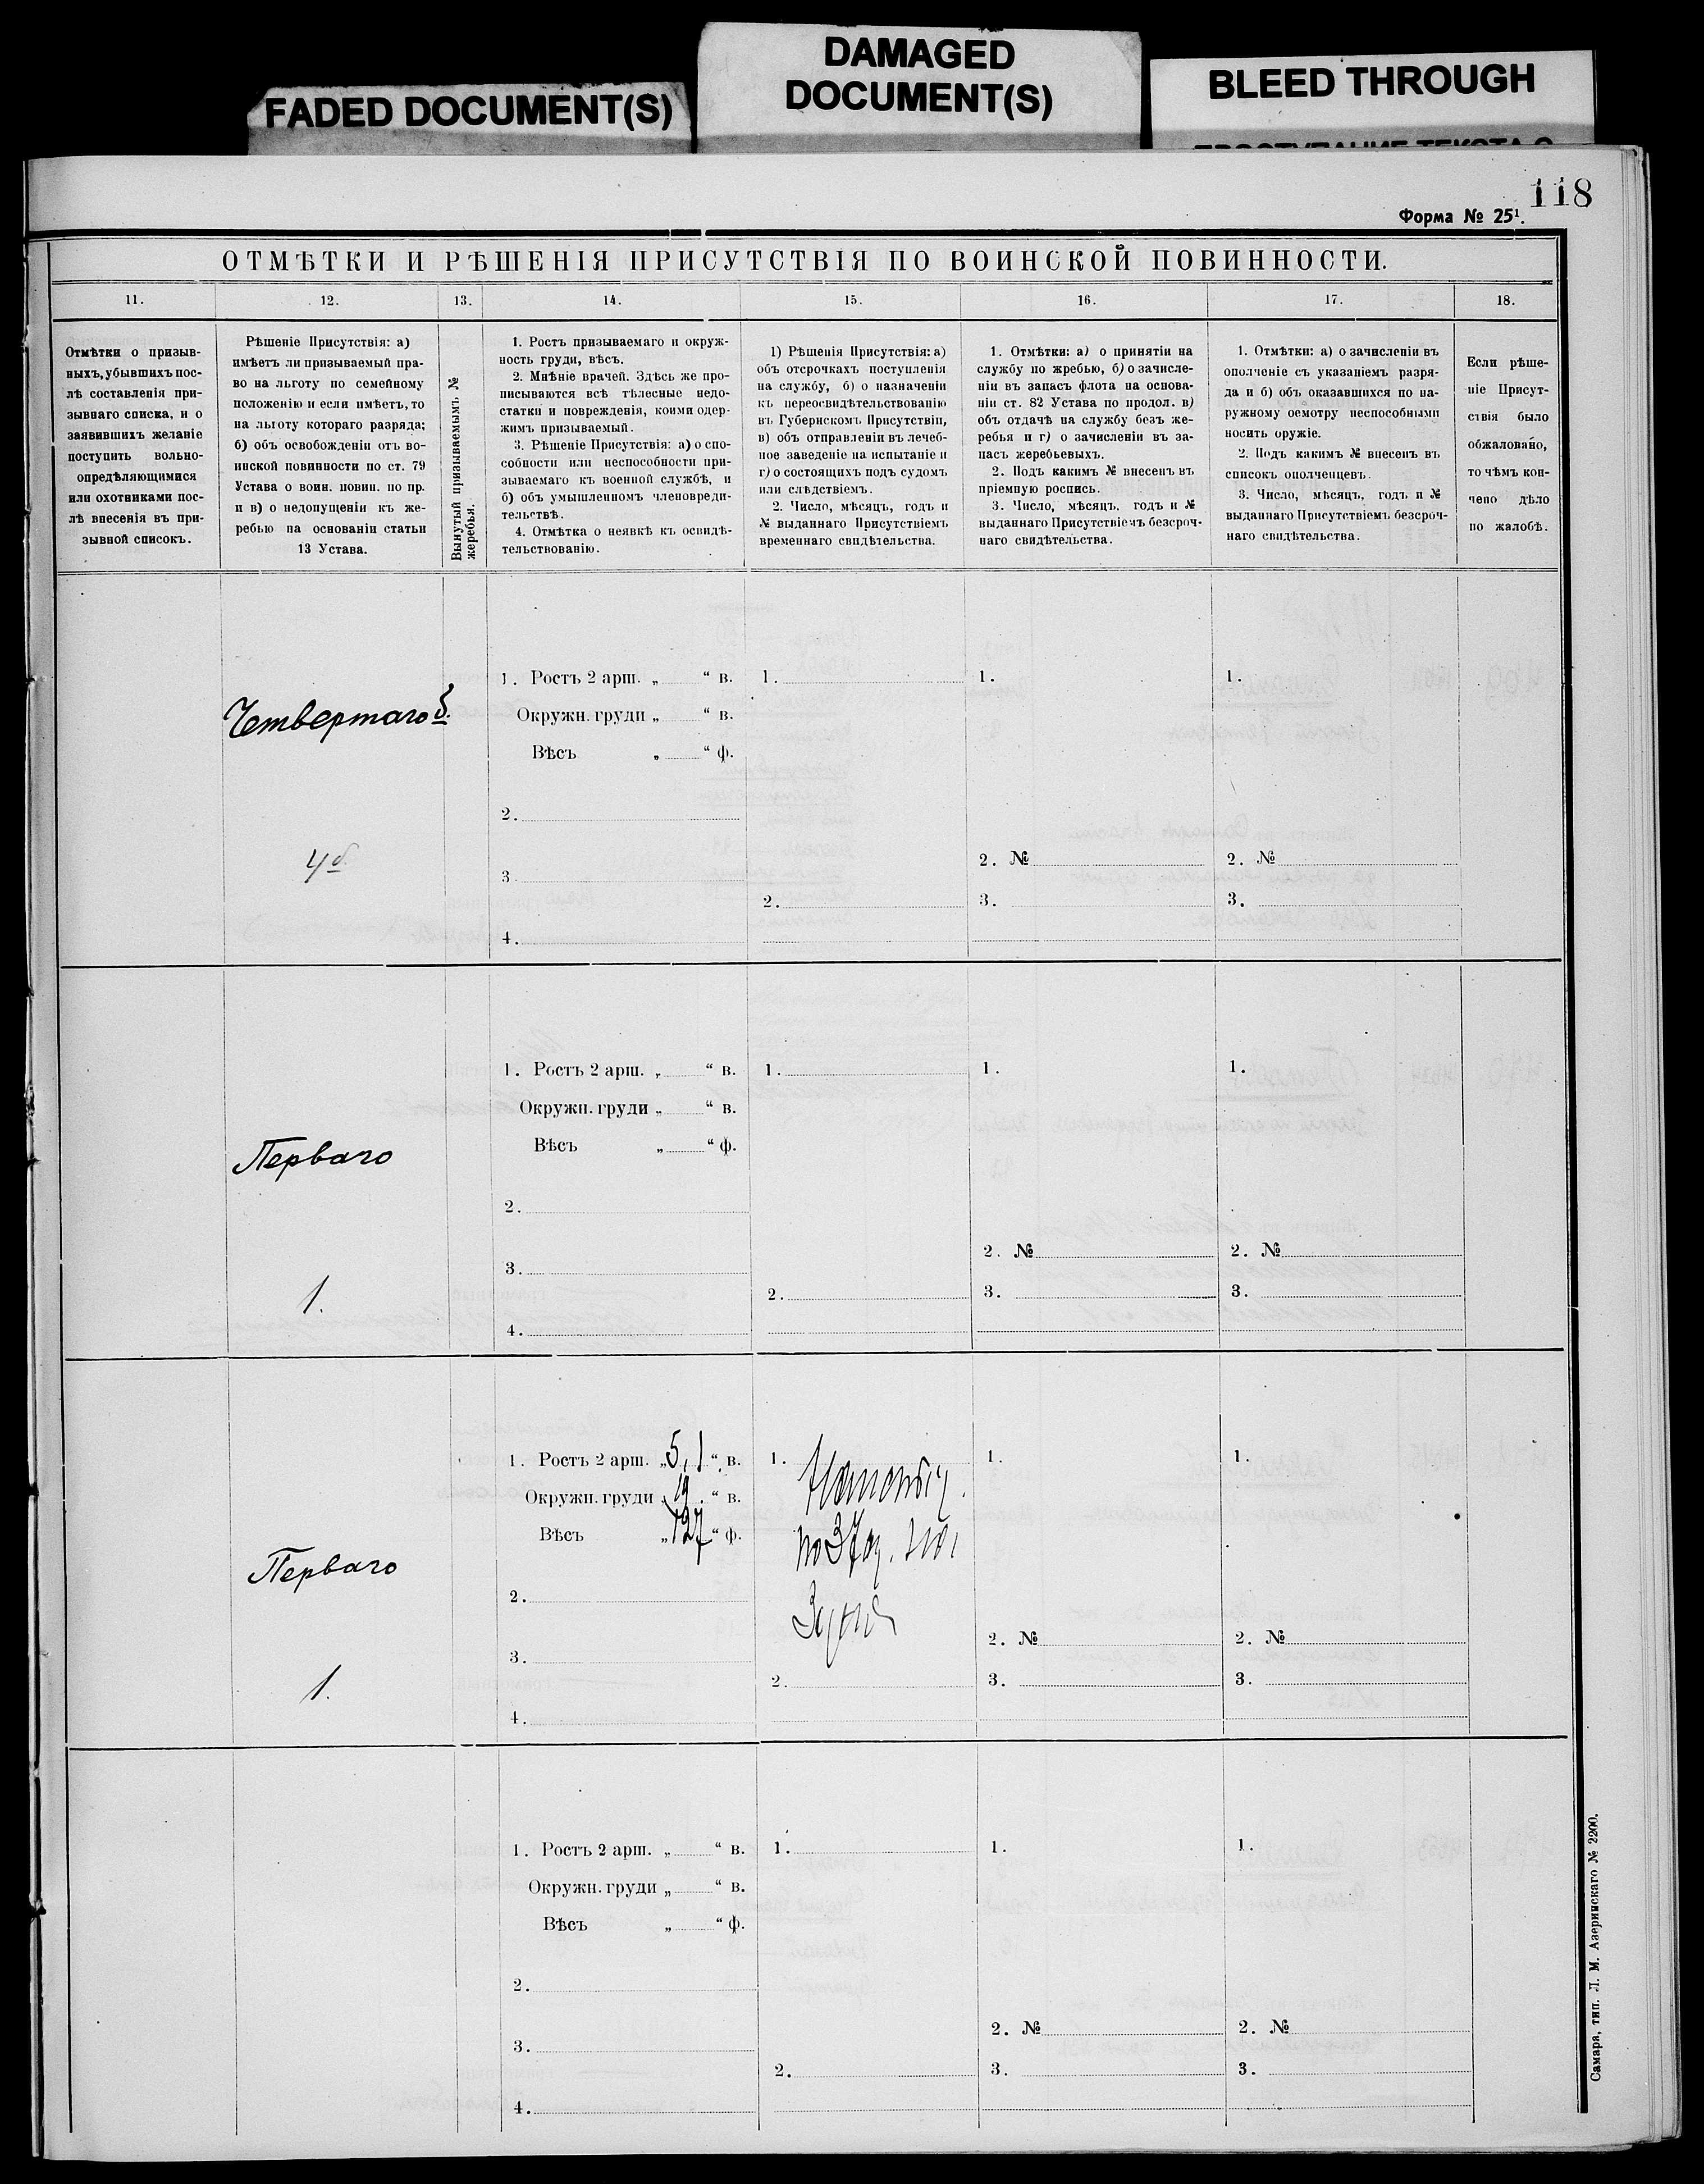 FADED DOCUMENT(S)
DAMAGED
DOCUMENT(S)
BLEED THROUGH
118
Форма № 25¹.
ОТМѢТКИ И РѢШЕНІЯ ПРИСУТСТВІЯ ПО ВОИНСКОЙ ПОВИННОСТИ.
11.
12.
13.
14.
15.
16.
17.
18.
Отмѣтки о призыв-
ныхъ, убывшихъ пос-
лѣ составленія при-
зывнаго списка, и о
заявившихъ желаніе
поступить вольно-
опредѣляющимися
или охотниками пос-
лѣ внесенія въ при-
зывной списокъ.
Рѣшеніе Присутствія: а)
имѣетъ ли призываемый пра-
во на льготу по семейному
положенію и если имѣетъ, то
на льготу котораго разряда;
б) объ освобожденіи отъ во-
инской повинности по ст. 79
Устава о воин. повин. по пр.
и в) о недопущеніи къ же-
ребью на основаніи статьи
13 Устава.
Вынутый призываемымъ №
жеребья.
1. Ростъ призываемаго и окруж-
ность груди, вѣсъ.
2. Мнѣніе врачей. Здѣсь же про-
писываются всѣ тѣлесные недо-
статки и поврежденія, коими одер-
жимъ призываемый.
3. Рѣшеніе Присутствія: а) о спо-
собности или неспособности при-
зываемаго къ военной службѣ, и
б) объ умышленномъ членовреди-
тельствѣ.
4. Отмѣтка о неявкѣ къ освидѣ-
тельствованію.
1) Рѣшенія Присутствія: а)
объ отсрочкахъ поступленія
на службу, б) о назначеніи
къ переосвидѣтельствованію
въ Губернскомъ Присутствіи,
в) объ отправленіи въ лечеб-
ное заведеніе на испытаніе и
г) о состоящихъ подъ судомъ
или слѣдствіемъ.
2. Число, мѣсяцъ, годъ и
№ выданнаго Присутствіемъ
временнаго свидѣтельства.
1. Отмѣтки: а) о принятіи на
службу по жребью, б) о зачисле-
ніи въ запасъ флота на основа-
ніи ст. 82 Устава по продол. в)
объ отдачѣ на службу безъ же-
ребья и г) о зачисленіи въ за-
пасъ жеребьевыхъ.
2. Подъ какимъ № внесенъ въ
пріемную роспись.
3. Число, мѣсяцъ, годъ и №
выданнаго Присутствіемъ безсроч-
наго свидѣтельства.
1. Отмѣтки: а) о зачисленіи въ
ополченіе съ указаніемъ разря-
да и б) объ оказавшихся по на-
ружному осмотру неспособными
носить оружіе.
2. Подъ какимъ № внесенъ въ
списокъ ополченцевъ.
3. Число, мѣсяцъ, годъ и №
выданнаго Присутствіемъ безсроч-
наго свидѣтельства.
Если рѣше-
ніе Присут-
ствія было
обжаловано,
то чѣмъ кон-
чено дѣло
по жалобѣ.
Четвертаго б.
4б
1. Ростъ 2 арш. „ “ в.
Окружн. груди „ “ в.
Вѣсъ „ “ ф.
2.
3.
4.
1.
2.
1.
2. №
3.
1.
2. №
3.
Перваго
1.
1. Ростъ 2 арш. „ “ в.
Окружн. груди „ “ в.
Вѣсъ „ “ ф.
2.
3.
4.
1.
2.
1.
2. №
3.
1.
2. №
3.
Перваго
1.
1. Ростъ 2 арш. „ 5,1 “ в.
Окружн. груди „ 19 “ в.
Вѣсъ „ 127 “ ф.
2.
3.
4.
1.
2.
1.
2. №
3.
1.
2. №
3.
1. Ростъ 2 арш. „ “ в.
Окружн. груди „ “ в.
Вѣсъ „ “ ф.
2.
3.
4.
1.
2.
1.
2. №
3.
1.
2. №
3.
Самара, тип. Л. М. Азеринскаго № 2200.